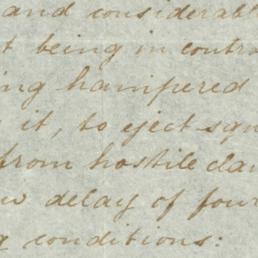 and considerabl
t being in contro
ing hampered
it, to eject squ
from hostile clai
w delay of four
g conditions: